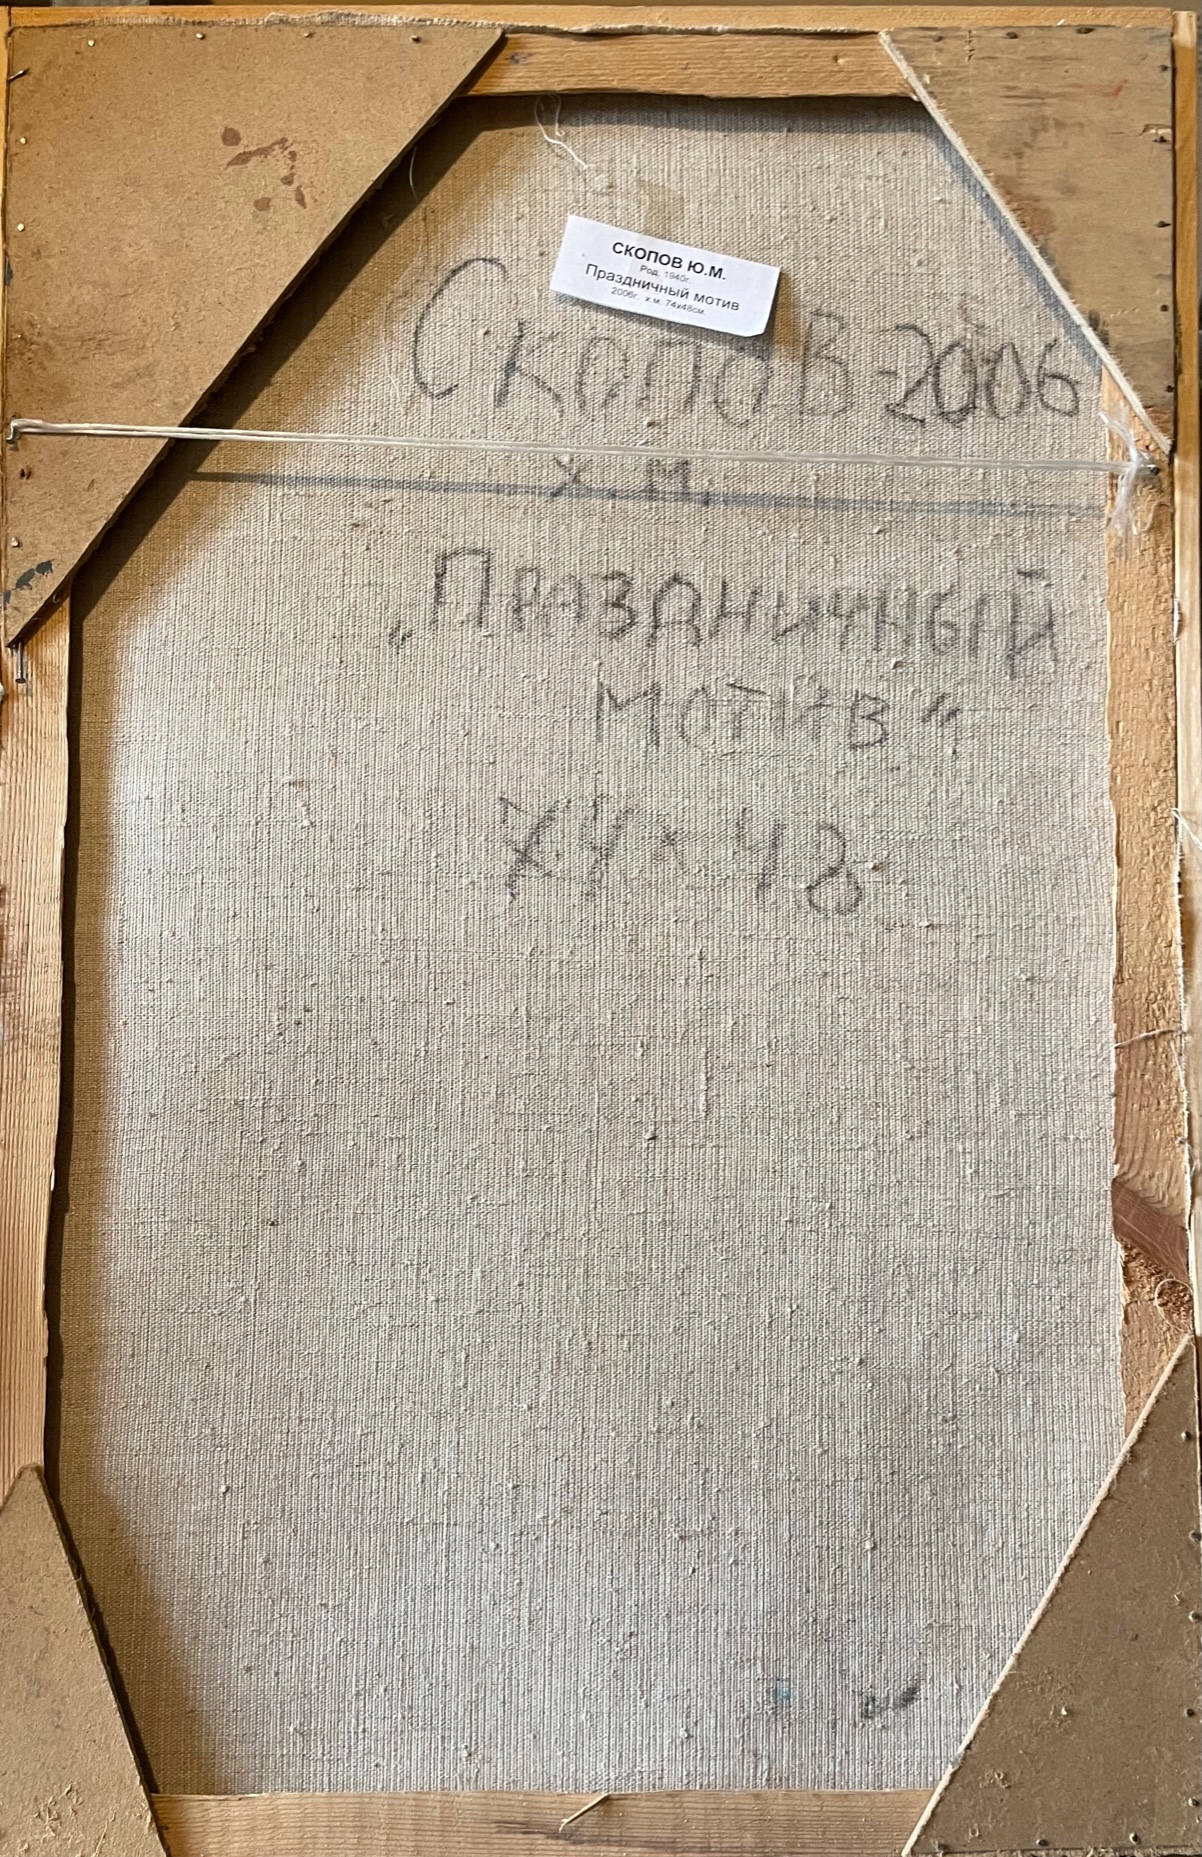 СКОПОВ Ю.М.
Род. 1940г.
Праздничный мотив
2006г. х.м. 74х48см.
Скопов-2006
х.м.
„Праздничный
мотив"
74×48